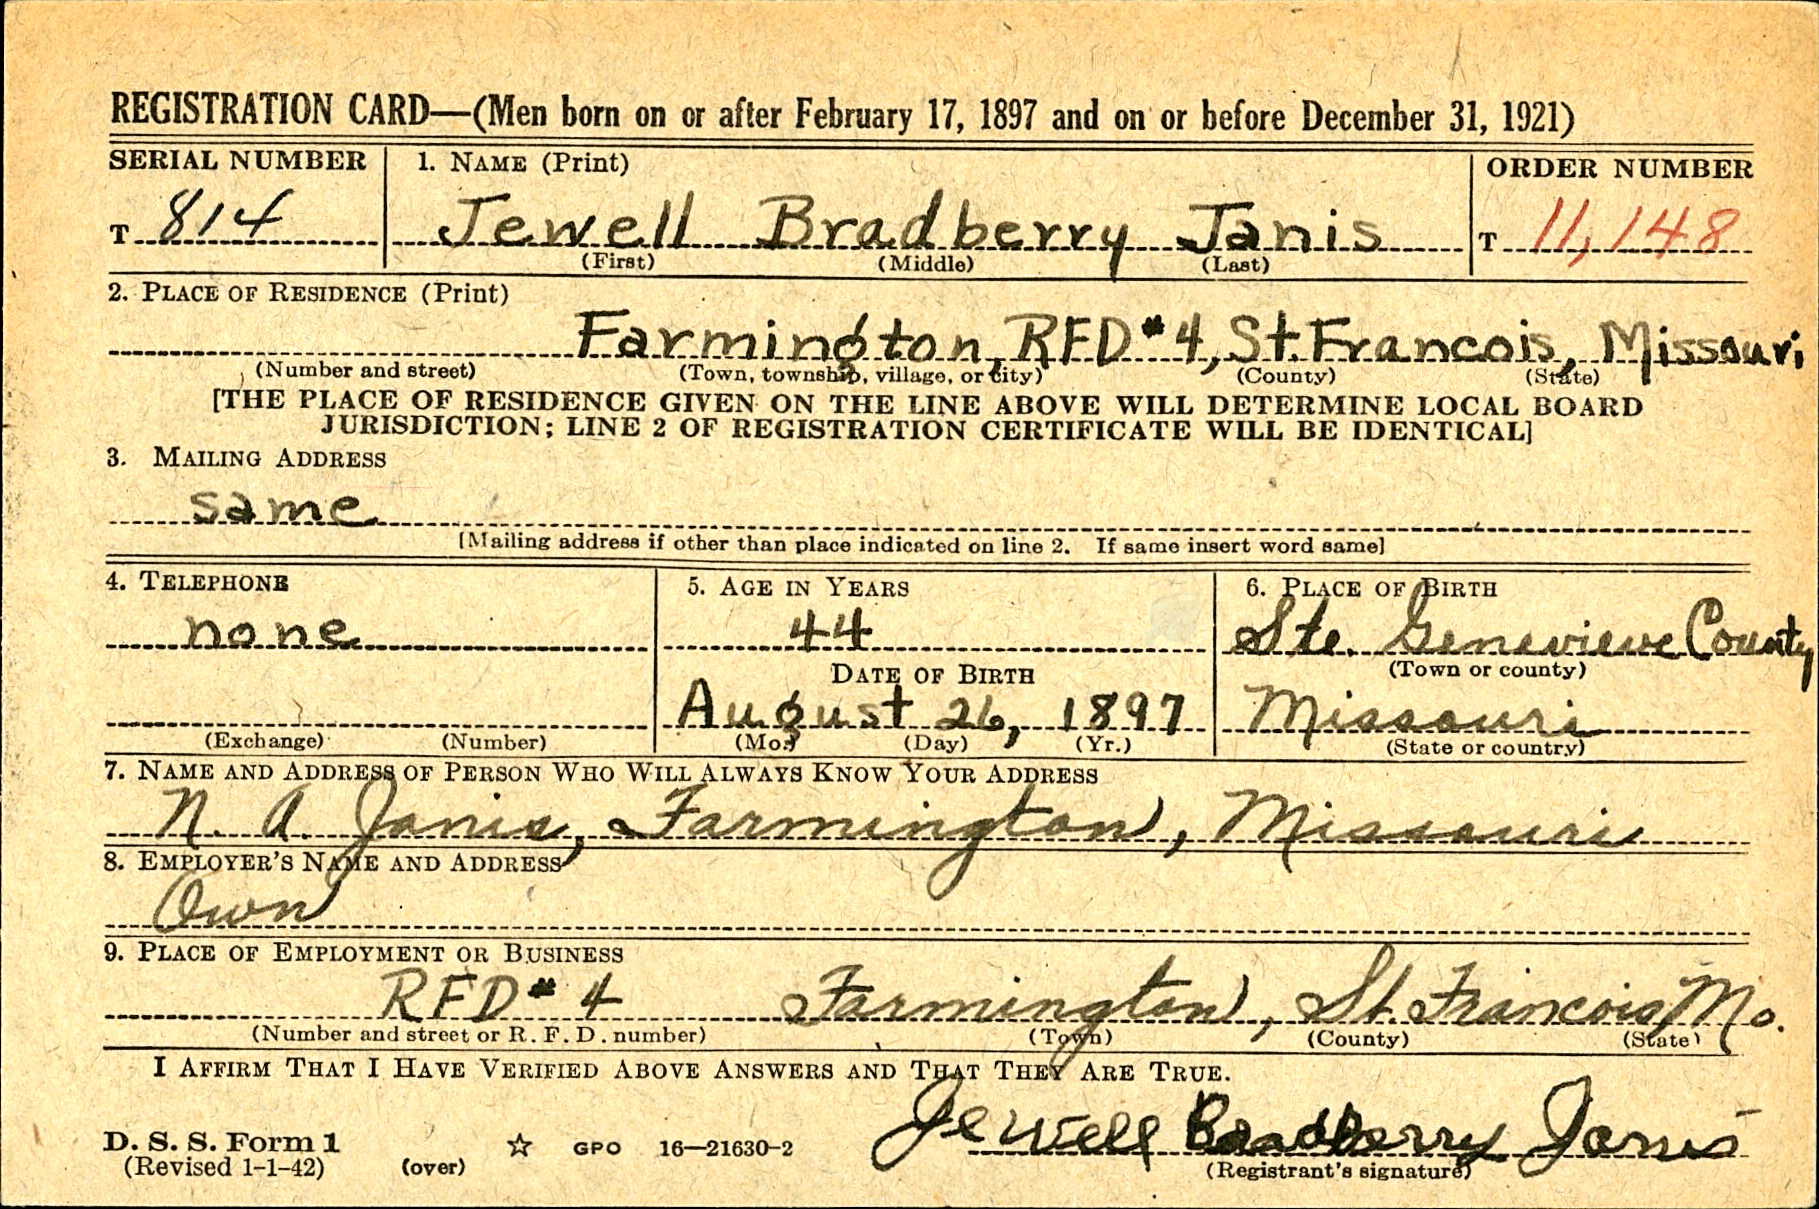 REGISTRATION CARD—(Men born on or after February 17, 1897 and on or before December 31, 1921)
SERIAL NUMBER 1. NAME (Print) ORDER NUMBER
T 814 Jewell Bradberry Janis T 11,148
(First) (Middle) (Last)
2. PLACE OF RESIDENCE (Print)
Farmington, RFD #4, St. Francois, Missouri
(Number and street) (Town, township, village, or city) (County) (State)
[THE PLACE OF RESIDENCE GIVEN ON THE LINE ABOVE WILL DETERMINE LOCAL BOARD
JURISDICTION; LINE 2 OF REGISTRATION CERTIFICATE WILL BE IDENTICAL]
3. MAILING ADDRESS
same
[Mailing address if other than place indicated on line 2. If same insert word same]
4. TELEPHONE 5. AGE IN YEARS 6. PLACE OF BIRTH
none 44 Ste. Genevieve County
DATE OF BIRTH (Town or county)
August 26, 1897 Missouri
(Exchange) (Number) (Mo.) (Day) (Yr.) (State or country)
7. NAME AND ADDRESS OF PERSON WHO WILL ALWAYS KNOW YOUR ADDRESS
N. A. Janis, Farmington, Missouri
8. EMPLOYER'S NAME AND ADDRESS
Own
9. PLACE OF EMPLOYMENT OR BUSINESS
RFD # 4 Farmington, St. Francois, Mo.
(Number and street or R. F. D. number) (Town) (County) (State)
I AFFIRM THAT I HAVE VERIFIED ABOVE ANSWERS AND THAT THEY ARE TRUE.
Jewell Bradberry Janis
D. S. S. Form 1 ☆ GPO 16—21630-2
(Revised 1-1-42) (over) (Registrant's signature)